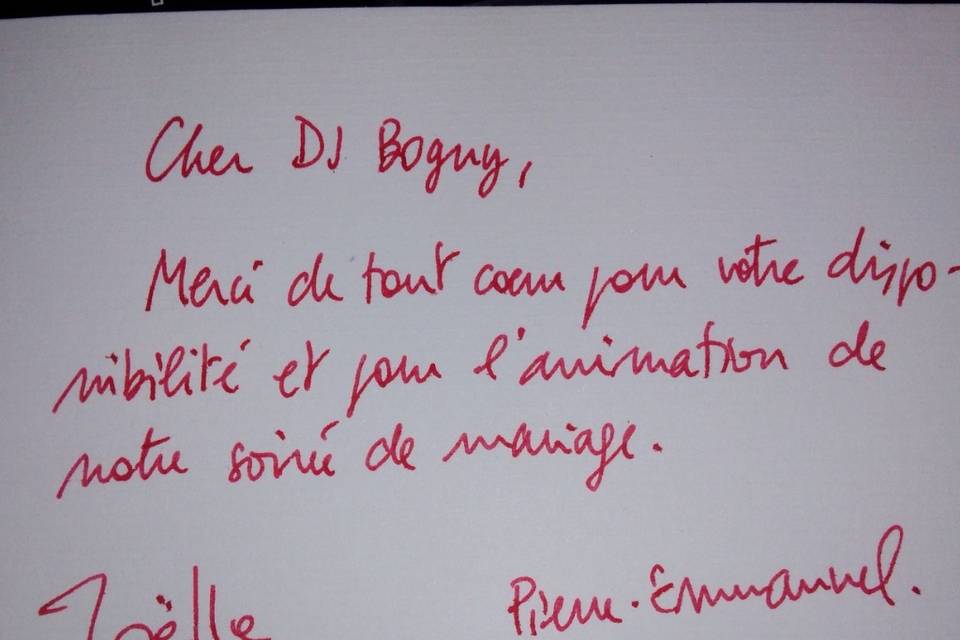 Cher DJ Boguy,
Merci de tout cœur pour votre dispo-
nibilité et pour l'animation de
notre soirée de mariage.
Joëlle Pierre-Emmanuel.